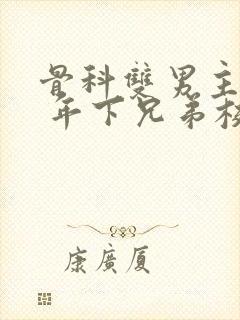 骨科雙男主
年下兄弟
康廣厦